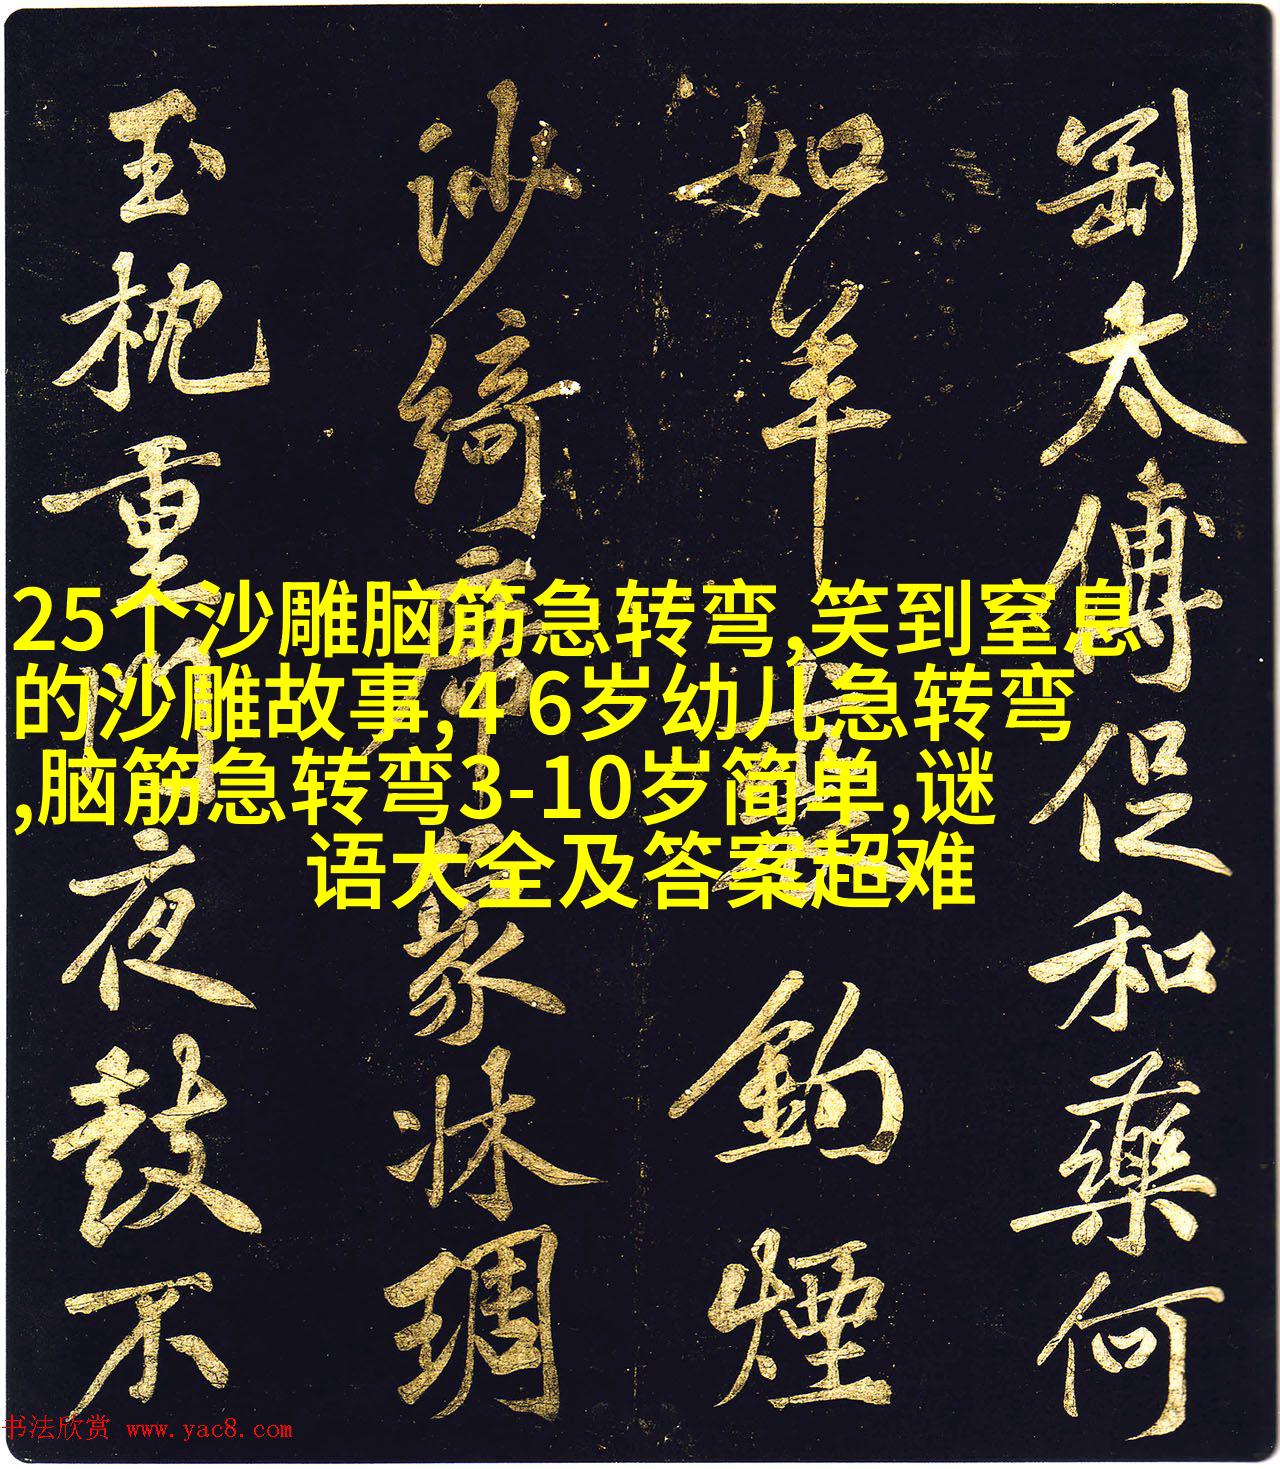 太傅促和藥何
如羊鈎煙
沙綺席篆牀琱
玉枕重夜鼓不
25个沙雕脑筋急转弯,笑到窒息
的沙雕故事,4 6岁幼儿急转弯
,脑筋急转弯3-10岁简单,谜
语大全及答案超难
书法欣赏 www.yac8.com